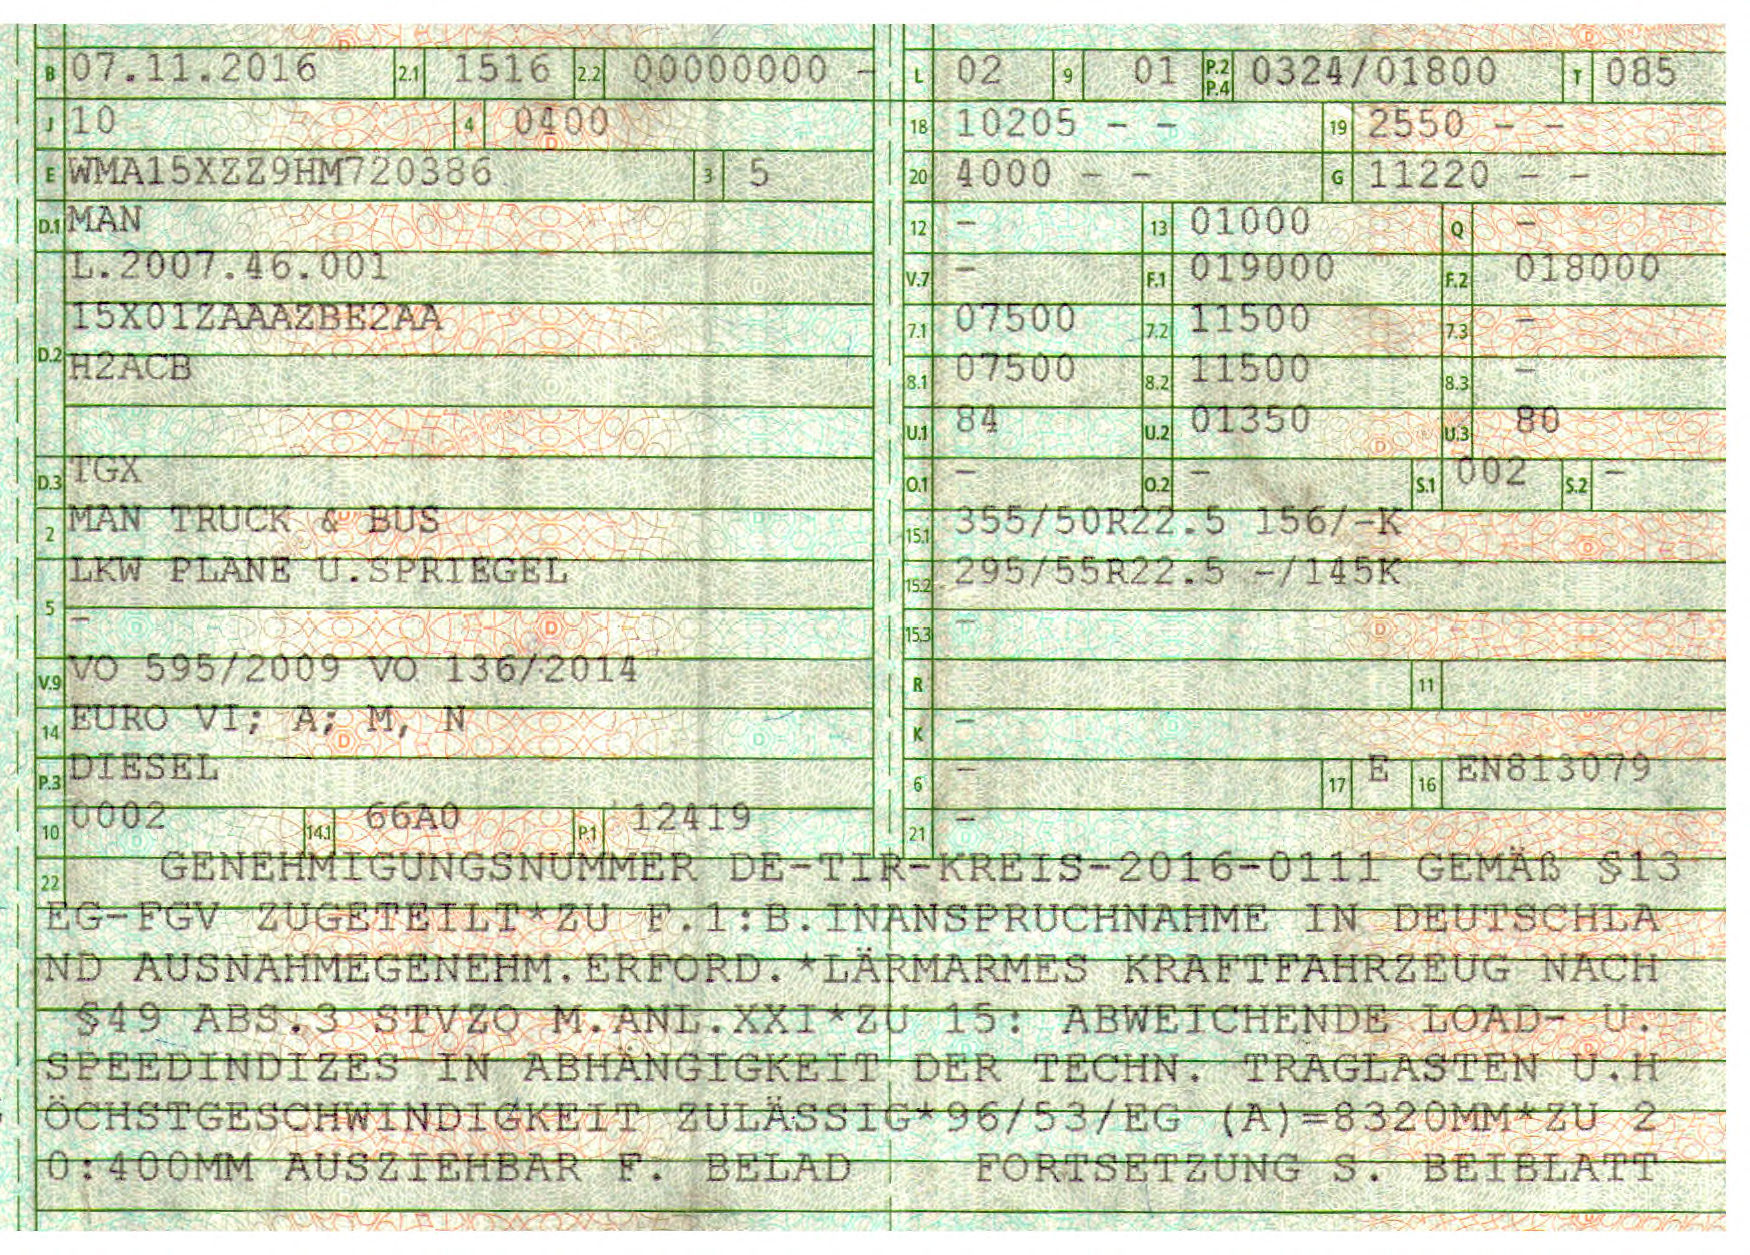 B 07.11.2016 2.1 1516 2.2 00000000 - L 02 9 01 P.2 P.4 0324/01800 T 085
J 10 4 0400 18 10205 - - 19 2550 - -
E WMA15XZZ9HM720386 3 5 20 4000 - - G 11220 - -
D.1 MAN 12 - 13 01000 Q -
L.2007.46.001 V.7 - F.1 019000 F.2 018000
15X01ZAAAZBE2AA 7.1 07500 7.2 11500 7.3 -
D.2 H2ACB 8.1 07500 8.2 11500 8.3 -
U.1 84 U.2 01350 U.3 80
D.3 TGX O.1 - O.2 - S.1 002 S.2 -
2 MAN TRUCK & BUS 15.1 355/50R22.5 156/-K
LKW PLANE U.SPRIEGEL 15.2 295/55R22.5 -/145K
5 - 15.3 -
V.9 VO 595/2009 VO 136/2014 R 11
14 EURO VI; A; M, N K -
P.3 DIESEL 6 - 17 E 16 EN813079
10 0002 14.1 66A0 P.1 12419 21 -
22 GENEHMIGUNGSNUMMER DE-TIR-KREIS-2016-0111 GEMÄß §13
EG-FGV ZUGETEILT*ZU F.1:B.INANSPRUCHNAHME IN DEUTSCHLA
ND AUSNAHMEGENEHM.ERFORD.*LÄRMARMES KRAFTFAHRZEUG NACH
§49 ABS.3 STVZO M.ANL.XXI*ZU 15: ABWEICHENDE LOAD- U.
SPEEDINDIZES IN ABHÄNGIGKEIT DER TECHN. TRAGLASTEN U.H
ÖCHSTGESCHWINDIGKEIT ZULÄSSIG*96/53/EG (A)=8320MM*ZU 2
0:400MM AUSZIEHBAR F. BELAD FORTSETZUNG S. BEIBLATT